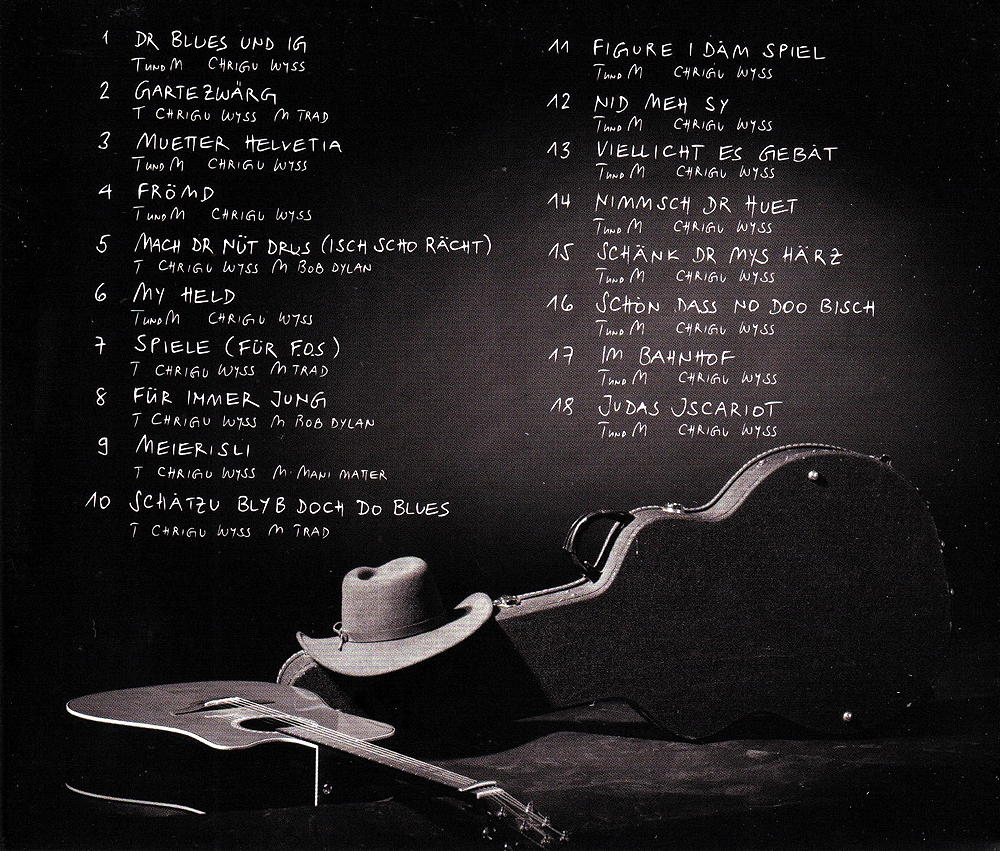 1 DR BLUES UND IG
T UND M CHRIGU WYSS
2 GARTEZWÄRG
T CHRIGU WYSS M TRAD
3 MUETTER HELVETIA
T UND M CHRIGU WYSS
4 FRÖMD
T UND M CHRIGU WYSS
5 MACH DR NÜT DRUS (ISCH SCHO RÄCHT)
T CHRIGU WYSS M BOB DYLAN
6 MY HELD
T UND M CHRIGU WYSS
7 SPIELE (FÜR F.O.S)
T CHRIGU WYSS M TRAD
8 FÜR IMMER JUNG
T CHRIGU WYSS M BOB DYLAN
9 MEIERISLI
T CHRIGU WYSS M. MANI MATTER
10 SCHÄTZU BLYB DOCH DO BLUES
T CHRIGU WYSS M TRAD
11 FIGURE I DÄM SPIEL
T UND M CHRIGU WYSS
12 NID MEH SY
T UND M CHRIGU WYSS
13 VIELLICHT ES GEBÄT
T UND M CHRIGU WYSS
14 NIMMSCH DR HUET
T UND M CHRIGU WYSS
15 SCHÄNK DR MYS HÄRZ
T UND M CHRIGU WYSS
16 SCHÖN DASS NO DOO BISCH
T UND M CHRIGU WYSS
17 IM BAHNHOF
T UND M CHRIGU WYSS
18 JUDAS ISCARIOT
T UND M CHRIGU WYSS